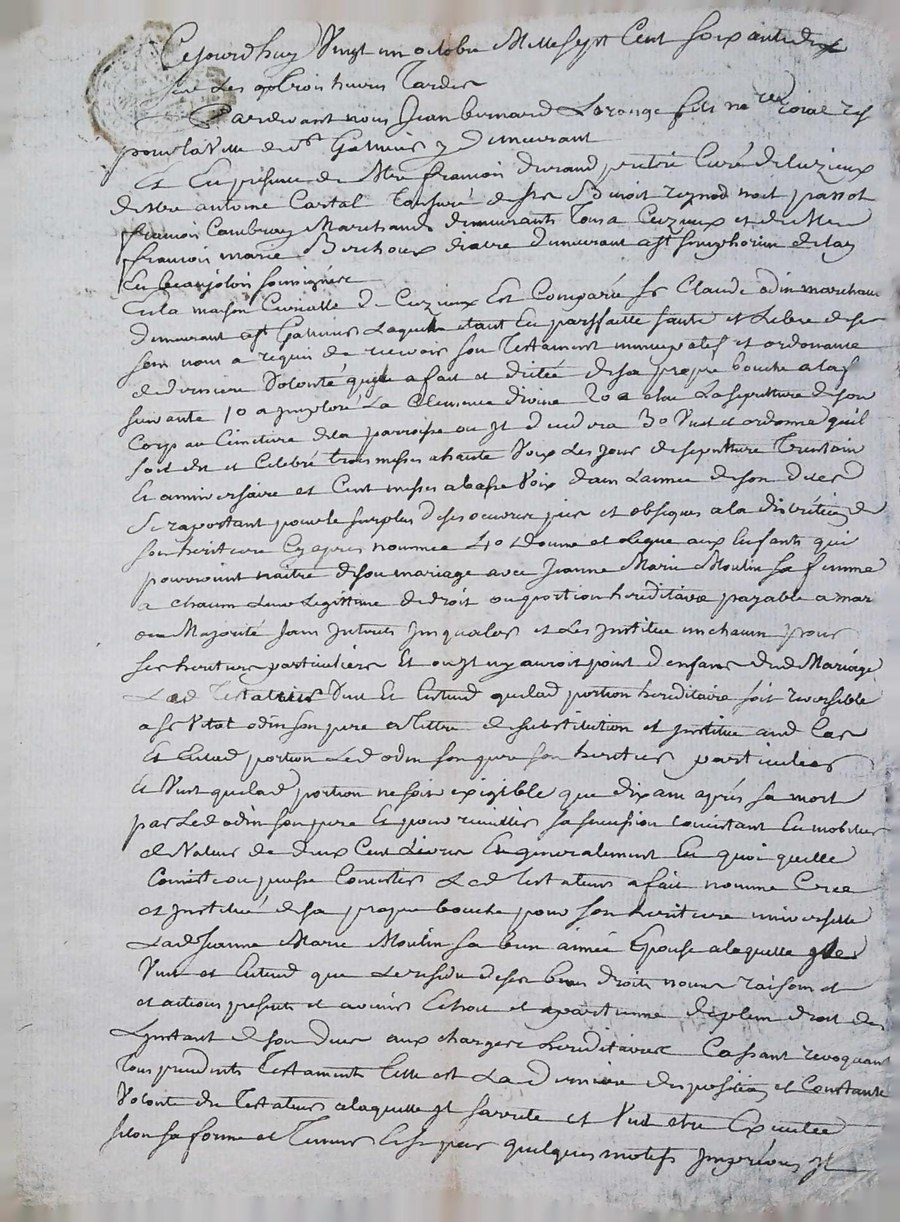 Cejourdhuy Vingt un octobre Mille sept Cent soixante dix
sur Les trois heures Tardes
Pardevant nous Jean bernard Laronge fils no.re roial
pour la Ville de st Galmier y demeurant
Et En présence de Mre francois durand prêtre Curé de Cuzieux
de Mre antoine Cartal Tonsuré de srs Benoit
francois Cambray Marchands demeurants Tous a Cuzieux et de Mre
francois marie Berchoux diacre demeurant a st simphorien de lay
En beaujolois soussignés
En la maison Curialle de Cuzieux Est Comparu sr Claude odin marchand
demeurant a st Galmier Lequel etant En parfaitte santé et Libre de ses
sens nous a requis de recevoir son Testament nuncupatif et ordonance
de derniere Volonté quil a fait et dictée de sa propre bouche
suivante 1o a Imploré La Clemence divine 2o a elu La sepulture de son
Corp au Cimetiere de la parroisse ou Il decedera 3o Veut et ordonne quil
soit dit et Celebré trois messes a haute Voix Les jours de sepulture Trentain
Et anniversaire et Cent messes a basse Voix dans Lannée de son deces
Se raportant pour le surplus de ses oeuvres pies et obseques a la discrétion de
son heritiere Cy après nommée 4o donne et legue aux Enfants qui
pourroient naitre de son mariage avec Jeanne Marie Moulin sa femme
a chacun Leur Legittime de droit ou portion hereditaire payable a mar
ou Majorité sans Interets Jusqualors et Les Institue un chacun pour
ses heritiers particuliers Et ou Il ny auroit point d enfans dud Mariage
Led Testateur Veut Et Entend que lad portion hereditaire soit reversible
a sr Vital odin son pere a tittre de substitution et Institue aud Cas
Et En lad portion Led odin son pere son heritier particulier
Et Veut que lad portion ne soit exigible que dix ans après sa mort
par Led odin son pere Et pour recueillir sa sucession Consistant En mobilier
de Valeur de deux Cent Livres En generalement En quoi quelle
Consiste ou puisse Consister Led Testateur a fait nommé Créé
et Institué de sa propre bouche pour son heritiere universelle
Lad Jeanne Marie Moulin sa bien aimée Epouse a laquelle Il
Veut et Entend que Le residu de ses biens droits noms raisons et
et actions presents et avenirs Echoit et apartienne de plein droit des
Linstant de son deces aux charges hereditaires Cassant revoquant
Tous precedents Testaments Cette est La derniere disposition et Constante
Volonté du Testateur a laquelle Il sarrete et Veut etre Executée
selon sa forme et Teneur quelques motifs Impérieux Il